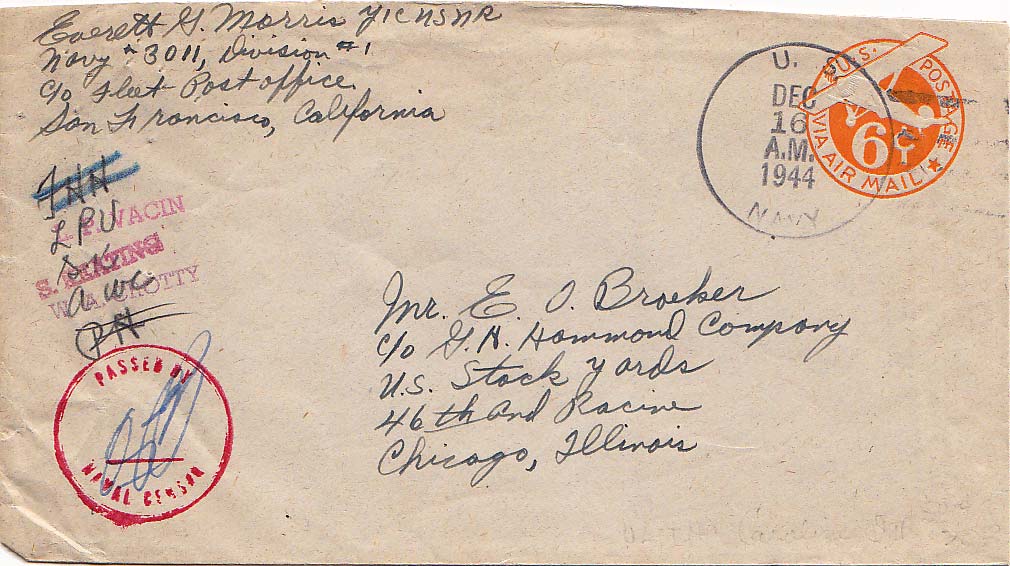 Everett G. Morris Y1C USNR
Navy #3011, Division #1
c/o Fleet Post office
San Francisco, California
U. S.
DEC
16
A.M.
1944
NAVY
U.S. POSTAGE
6 CTS
VIA AIR MAIL
LPV
VACIN
W.A. CROTTY
PASSED BY
NAVAL CENSOR
Mr. E. O. Broeker
c/o G. H. Hammond Company
U.S. Stock Yards
46th and Racine
Chicago, Illinois